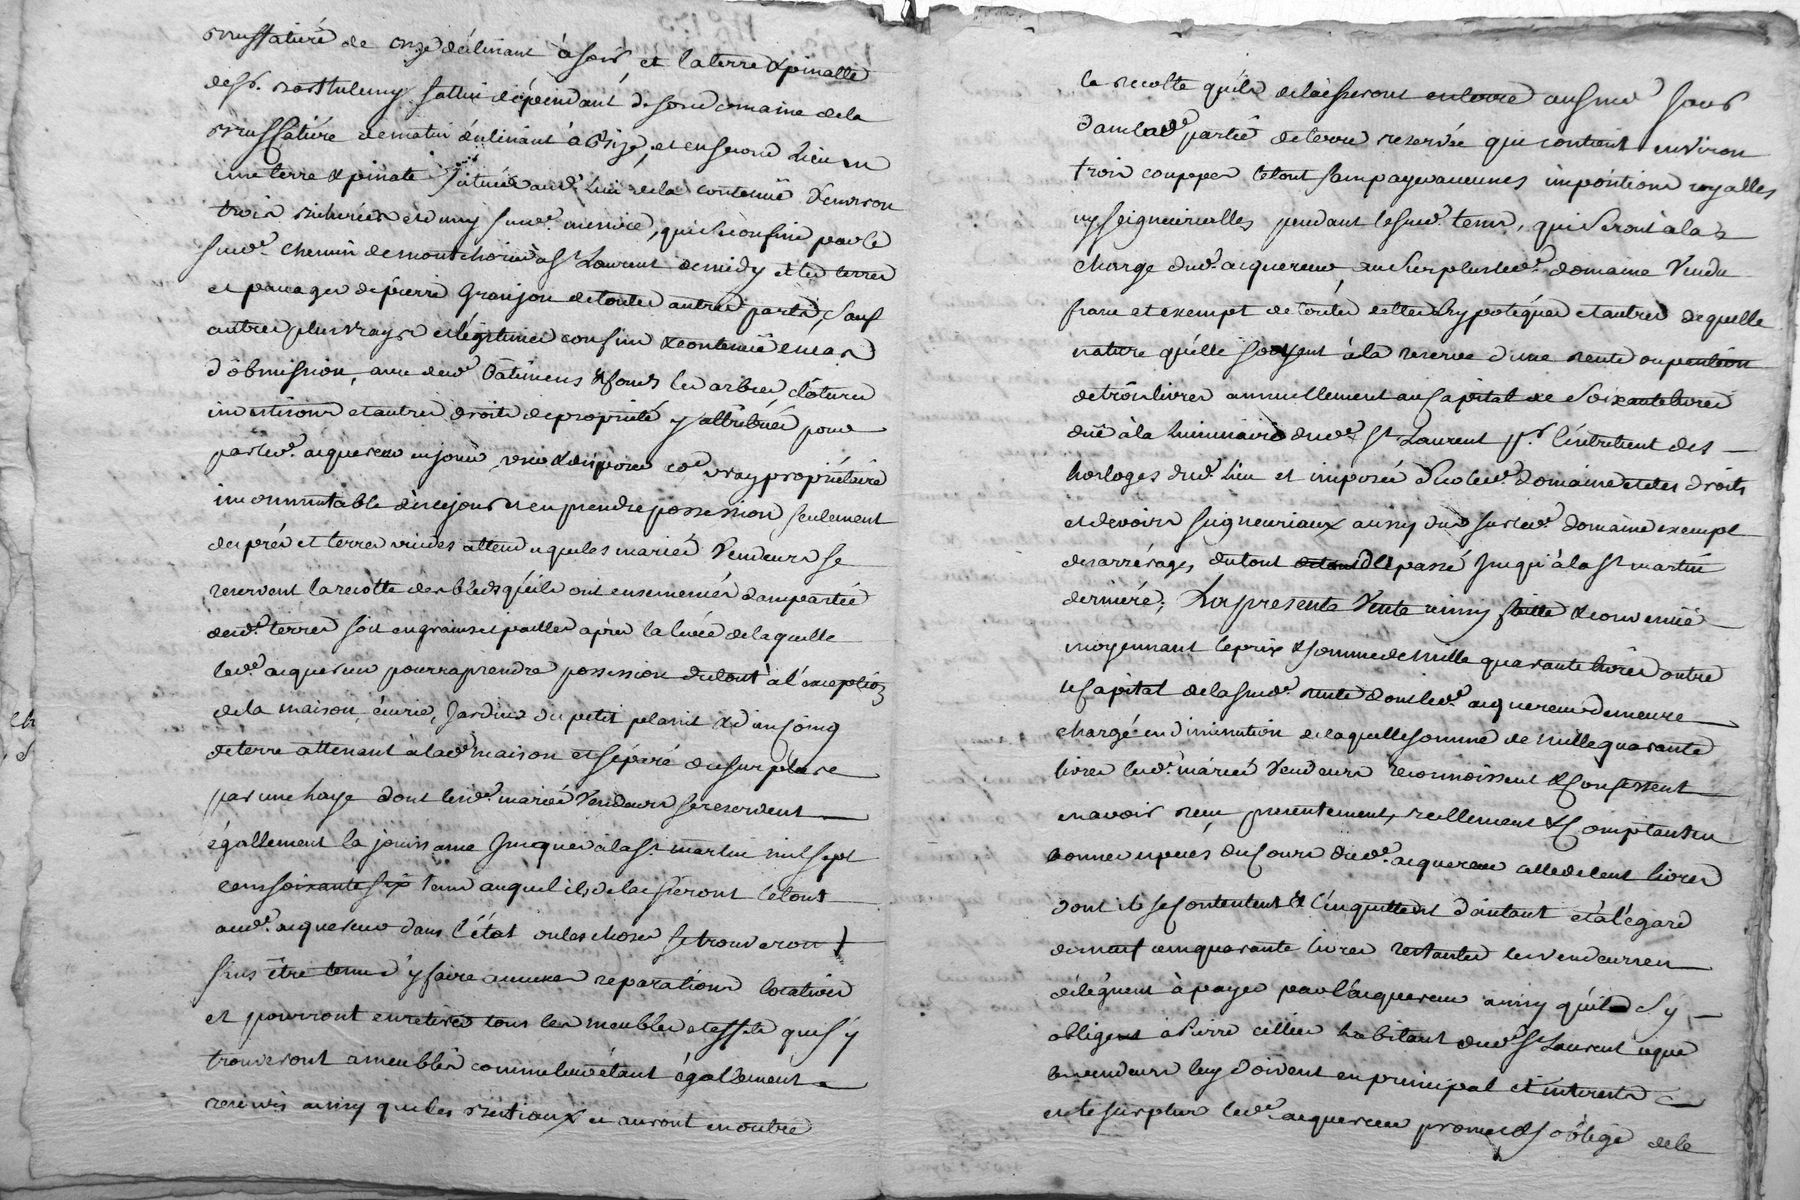 de onze déclinant à soir et la terre & pinatte
desd. dépendant de son domaine de la
de matin déclinant à bize, et en second lieu en
une terre & pinate située aud. lieu de la contenüe d'environ
trois et demy susd.e mesure, qui se confine par le
susd. chemin de a St Laurent de midy et les terres
et pacages de pierre Granjon de toutes autres parts, sauf
autres plus vrays et légitimes confins & contenüe en cas
d'obmission, avec desd. Bâtimens & fonds les arbres, clôtures
et autres droits de propriété y attribués pour
par led. acquereur en jouir, user & disposer co.e vray propriétaire
incommutable dès ce jour et en prendre possession seulement
des prés et terres vuides attendu que les mariés Vendeurs se
reservent la recolte des bleds qu'ils ont ensemencés dans partie
desd. terres soit en grains et pailles après la levée de laquelle
led. acquereur pourra prendre possession du tout à l'exception
de la maison, écurie, Jardin du petit & d'un coing
de terre attenant à lad. maison et séparé du surplus
par une haye dont lesd. mariés Vendeurs se reservent
égallement la jouissance Jusques à la St. martin mil sept
cens soixante six tems auquel ils delaisseront le tout
aud. acquereur dans l'état ou les choses se trouveront
sans être tenus d'y faire aucunes reparations locatives
et pourront en retirer tous les meubles et effets qui s'y
trouveront ameublés comme leur étant égallement
reservés ainsy que les et auront en outre
la recolte qu'ils delaisseront aussud. jour
dans lad. partie de terre reservée qui contient environ
trois coupées le tout sans payer aucunes impositions royalles
ny seigneurialles pendant le susd. tems, qui seront à la
charge dud. acquereur, au surplus led. domaine Vendu
franc et exempt de toutes dettes hypotéques et autres de quelle
nature qu'elle soyent à la reserve d'une rente ou pention
de trois livres annuellement au Capital de soixante livres
düe à la Luminaire dud. St Laurent pr. l'entretient des
horloges dud. lieu et imposée sur led. domaine et des droits
et devoirs seigneuriaux aussy dus sur led. domaine exempt
des arrérages du tout du passé Jusqu'à la St martin
derniére, La presente Vente ainsy faitte & convenüe
moyennant le prix & somme de mille quarante livres outre
le Capital de la susd. rente dont led. acquereur demeure
chargé en diminution de laquelle somme de mille quarante
livres lesd. mariés Vendeurs reconnoissent & Confessent
en avoir reçu presentement, reellement & Comptant en
bonnes especes du Cours dud. acquereur celle de cent livres
dont ils se Contentent & l'en quittent d'autant et à l'égard
de neuf cens quarante livres restantes les vendeurs en
délèguent à payer par l'acquereur ainsy qu'il s'y
oblige à Pierre cellier habitant dud. St Laurent ce que
les vendeurs luy doivent en principal et interets
et le surplus led. acquereur promet & s'oblige de le